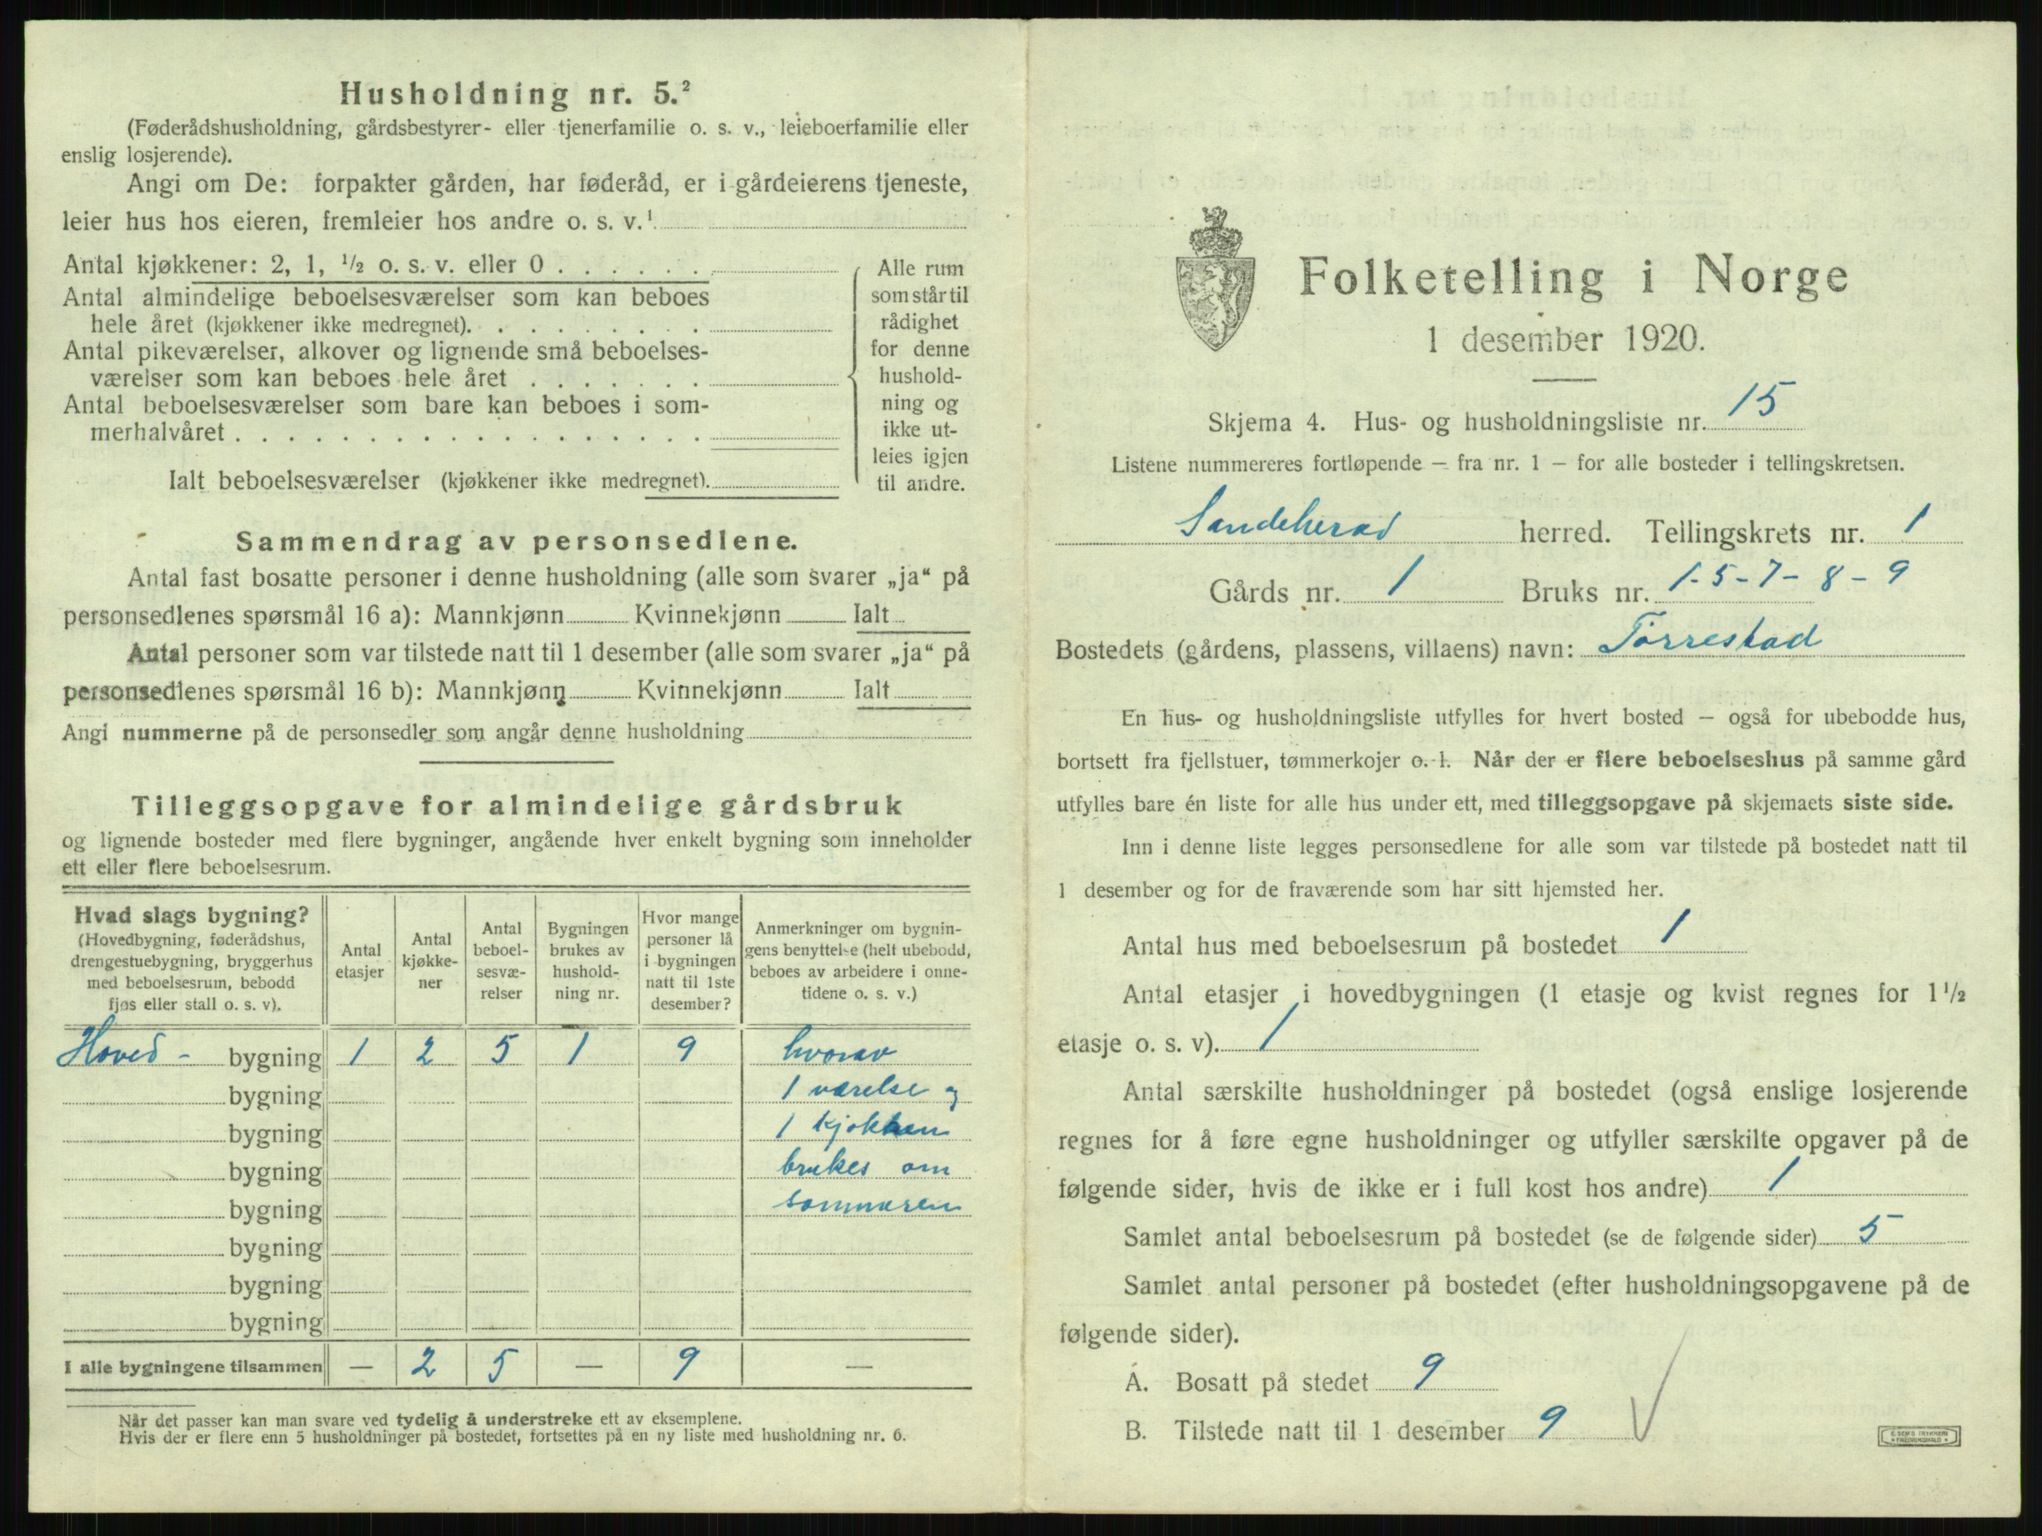 Husholdning nr. 5.²
(Føderådshusholdning, gårdsbestyrer- eller tjenerfamilie o. s. v., leieboerfamilie eller
enslig losjerende).
Angi om De: forpakter gården, har føderåd, er i gårdeierens tjeneste,
leier hus hos eieren, fremleier hos andre o. s. v.¹
Antal kjøkkener: 2, 1, ½ o. s. v. eller 0 . . . . . .
Antal almindelige beboelsesværelser som kan beboes
hele året (kjøkkener ikke medregnet). . . . . . . . .
Antal pikeværelser, alkover og lignende små beboelses-
værelser som kan beboes hele året . . . . . . .
Antal beboelsesværelser som bare kan beboes i som-
merhalvåret . . . . . . . . . . . . . . . . . .
Ialt beboelsesværelser (kjøkkener ikke medregnet).
Alle rum
som står til
rådighet
for denne
hushold-
ning og
ikke ut-
leies igjen
til andre.
Sammendrag av personsedlene.
Antal fast bosatte personer i denne husholdning (alle som svarer „ja“ på
personsedlenes spørsmål 16 a): Mannkjønn Kvinnekjønn Ialt
Antal personer som var tilstede natt til 1 desember (alle som svarer „ja“ på
personsedlenes spørsmål 16 b): Mannkjønn Kvinnekjønn Ialt
Angi nummerne på de personsedler som angår denne husholdning
Tilleggsopgave for almindelige gårdsbruk
og lignende bosteder med flere bygninger, angående hver enkelt bygning som inneholder
ett eller flere beboelsesrum.
Hvad slags bygning?
(Hovedbygning, føderådshus,
drengestuebygning, bryggerhus
med beboelsesrum, bebodd
fjøs eller stall o. s. v).
Antal
etasjer
Antal
kjøkke-
ner
Antal
beboel-
sesvæ-
relser
Bygningen
brukes av
hushold-
ning nr.
Hvor mange
personer lå
i bygningen
natt til 1ste
desember?
Anmerkninger om bygnin-
gens benyttelse (helt ubebodd,
beboes av arbeidere i onne-
tidene o. s. v.)
Hoved- bygning 1 2 5 1 9 hvorav
bygning 1 værelse og
bygning 1 kjøkken
bygning brukes om
bygning sommeren
bygning
bygning
bygning
I alle bygningene tilsammen — 2 5 — 9 —
Når det passer kan man svare ved tydelig å understreke ett av eksemplene.
Hvis der er flere enn 5 husholdninger på bostedet, fortsettes på en ny liste med husholdning nr. 6.
Folketelling i Norge
1 desember 1920.
Skjema 4. Hus- og husholdningsliste nr. 15
Listene nummereres fortløpende — fra nr. 1 — for alle bosteder i tellingskretsen.
Sandeherad herred. Tellingskrets nr. 1
Gårds nr. 1 Bruks nr. 1-5-7-8-9
Bostedets (gårdens, plassens, villaens) navn: Torrestad
En hus- og husholdningsliste utfylles for hvert bosted — også for ubebodde hus,
bortsett fra fjellstuer, tømmerkojer o. l. Når der er flere beboelseshus på samme gård
utfylles bare én liste for alle hus under ett, med tilleggsopgave på skjemaets siste side.
Inn i denne liste legges personsedlene for alle som var tilstede på bostedet natt til
1 desember og for de fraværende som har sitt hjemsted her.
Antal hus med beboelsesrum på bostedet 1
Antal etasjer i hovedbygningen (1 etasje og kvist regnes for 1½
etasje o. s. v). 1
Antal særskilte husholdninger på bostedet (også enslige losjerende
regnes for å føre egne husholdninger og utfyller særskilte opgaver på de
følgende sider, hvis de ikke er i full kost hos andre) 1
Samlet antal beboelsesrum på bostedet (se de følgende sider) 5
Samlet antal personer på bostedet (efter husholdningsopgavene på de
følgende sider).
A. Bosatt på stedet 9
B. Tilstede natt til 1 desember 9